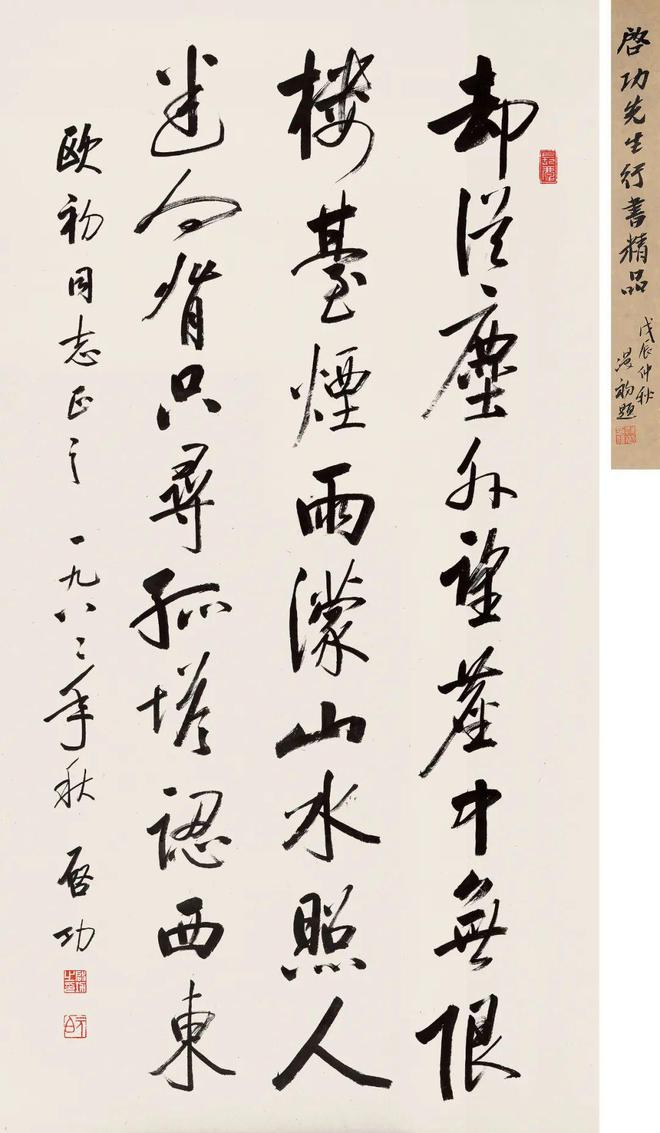 却從塵外望塵中無限
樓臺煙雨濛山水照人
迷向背只尋孤塔認西東
欧初同志正之 一九八二年秋 啓功
啓功先生行書精品
戊辰仲秋
初題